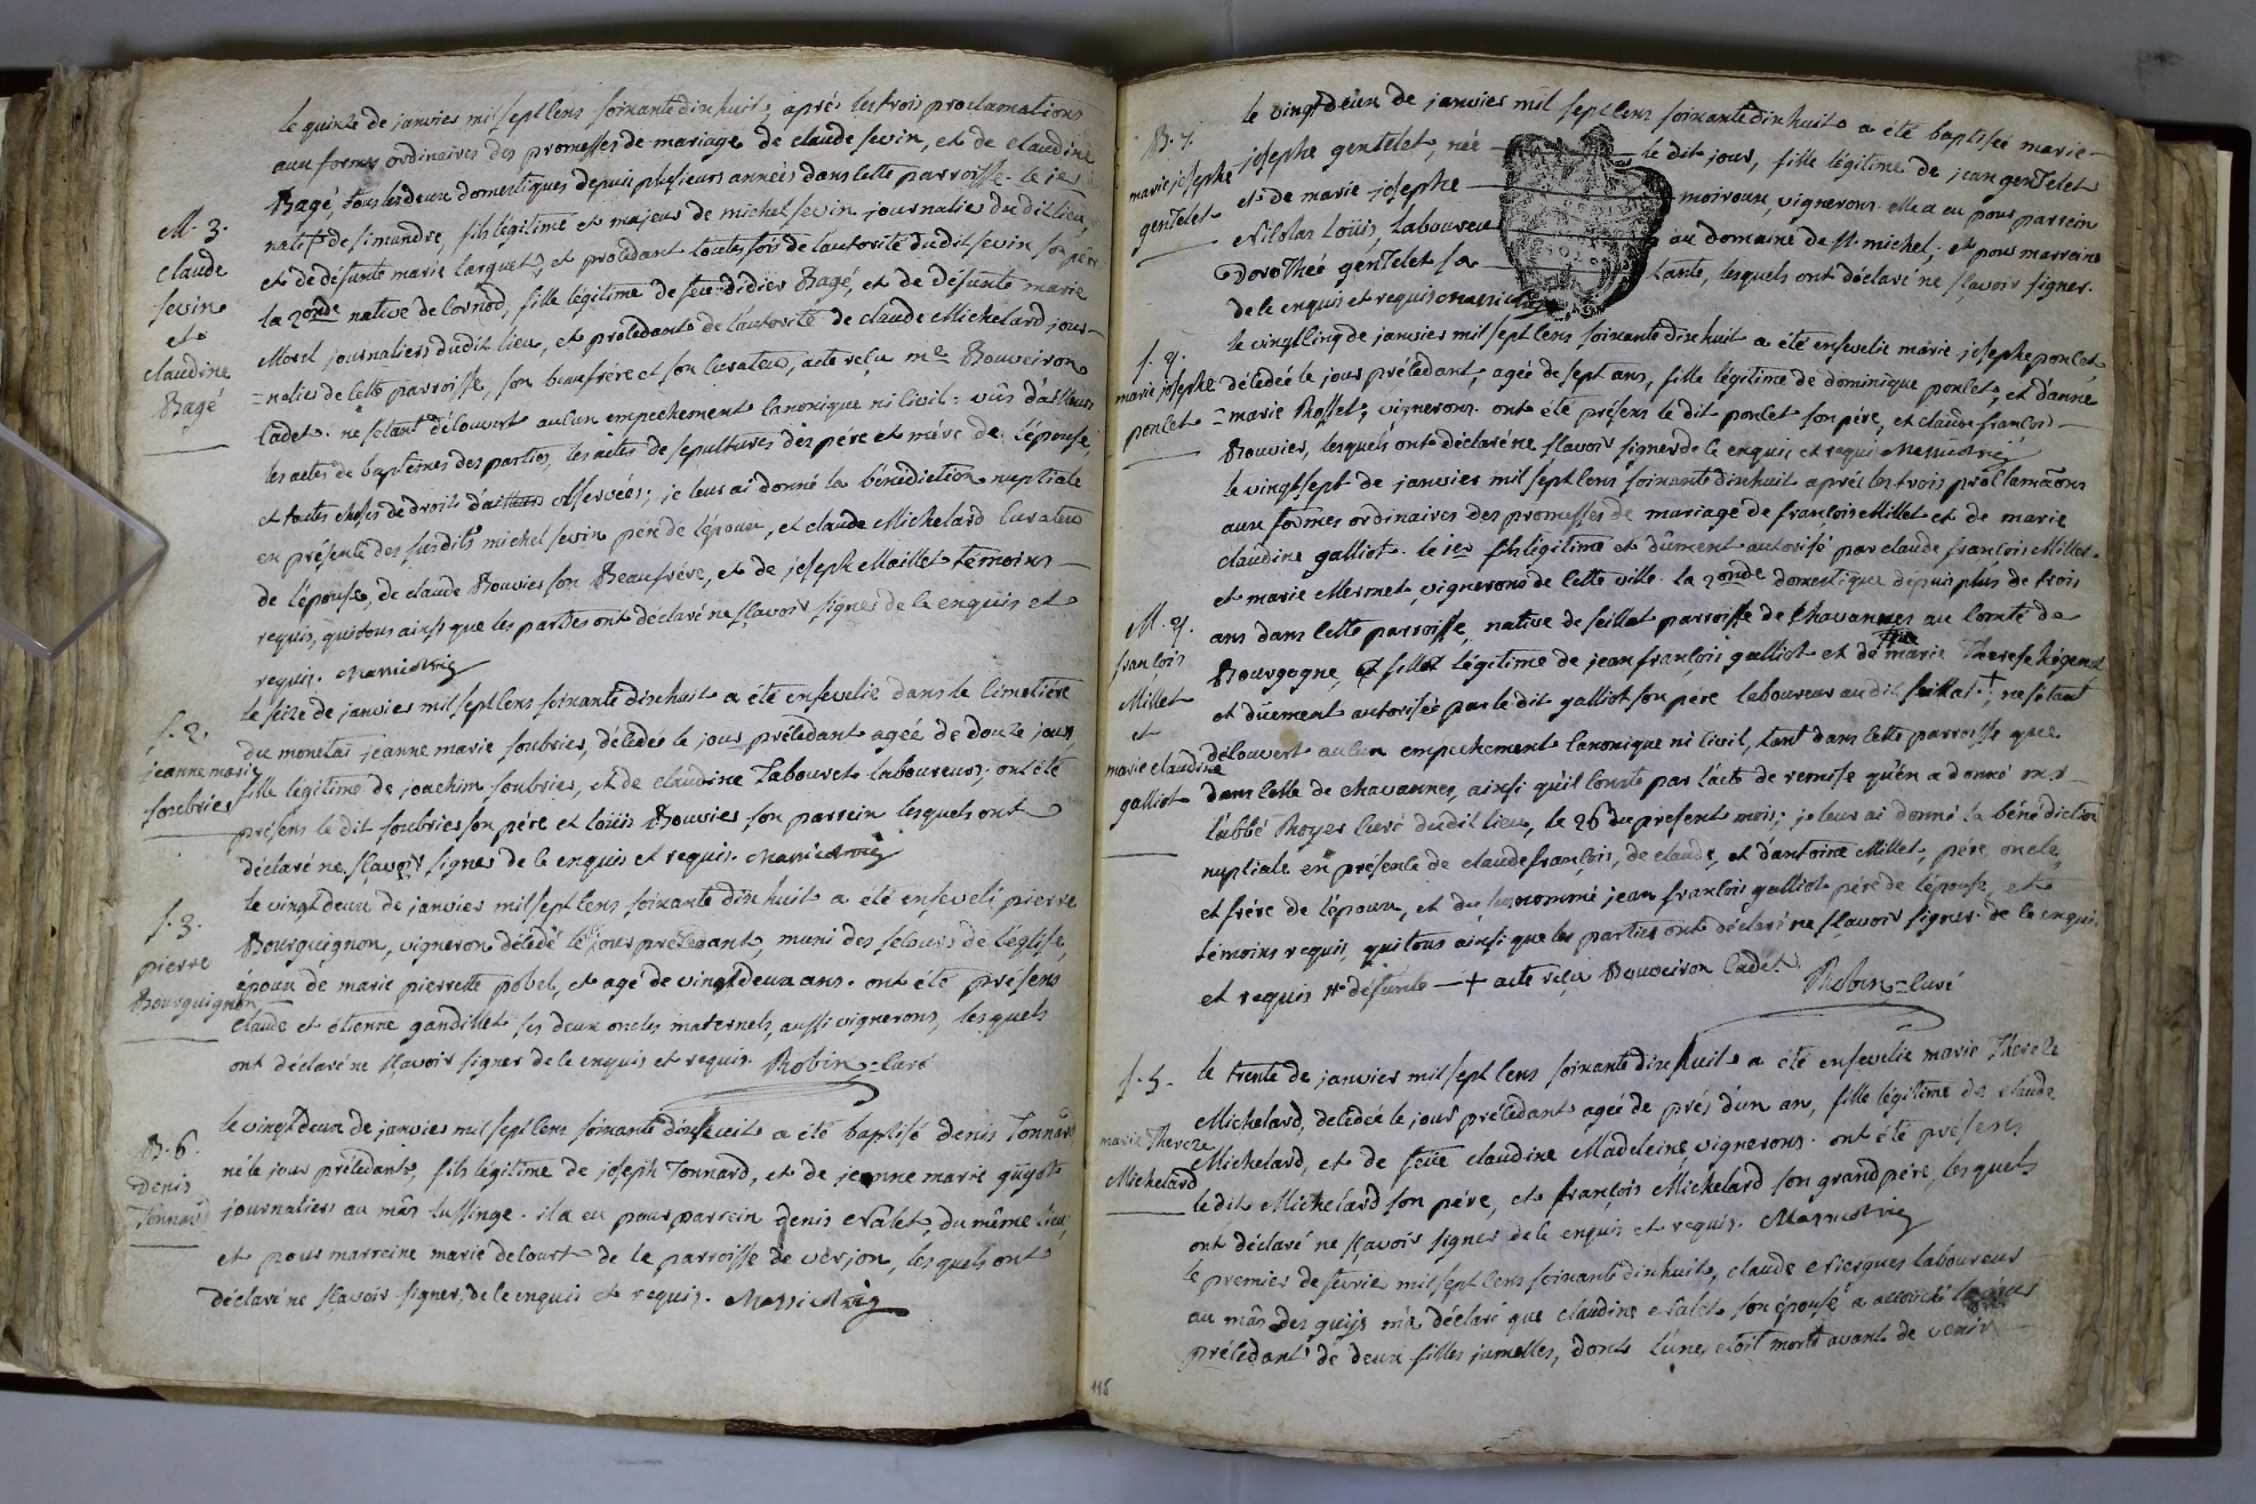 le quinze de janvier mil sept cens soixante dix huit, aprés les trois proclamations
aux formes ordinaires des promesses de mariage de claude sevin, et de claudine
Bagé, tous les deux domestiques depuis plusieurs années dans cette parroisse. le 1er
M. 3.
claude
sevin
et
claudine
Bagé
natif de simandre, fils légitime et majeur de michel sevin journalier dudit lieu,
et de défunte marie larguet, et procédant toutes fois de l'autorité dudit sevin son père
la 2onde native de Cornod, fille légitime de feu didier Bagé, et de défunte marie
Morel journaliers dudit lieu, et procédante de l'autorité de claude Michelard jour-
=nalier de cette parroisse, son beaufrére et son curateur, acte reçu me Bouveiron
Cadet. ne s'étant découvert aucun empechement canonique ni civil: vûs d'ailleurs
les actes de baptêmes des parties, les actes de sepultures des pére et mére de l'épouse,
et toutes choses de droits d'ailleurs observées; je leur ai donné la bénédiction nuptiale
en présence des susdits michel sevin pere de l'époux, et claude Michelard curateur
de l'épouse, de claude Bouvier son Beaufrére, et de joseph Maillet témoins
requis, qui tous ainsi que les parties ont déclaré ne sçavoir signer de ce enquis et
requis.
S. 2.
jeanne marie
soubrier
le seize de janvier mil sept cens soixante dix huit a été ensevelie dans le cimetiére
du monetai jeanne marie soubrier, décédée le jour précédant agée de douze jours,
fille légitime de joachim soubrier, et de claudine Tabouret laboureurs; ont été
présens le dit soubrier son pére et loüis Bouvier son parrein lesquels ont
déclaré ne sçavoir signer de ce enquis et requis.
S. 3.
pierre
Bourguignon
le vingt deux de janvier mil sept cens soixante dix huit a été enseveli pierre
Bourguignon, vigneron décédé le jour précédant, muni des secours de l'église,
époux de marie pierrette pobel, et agé de vingt deux ans. ont été présens
claude et étienne gandillet ses deux oncles maternels, aussi vignerons, lesquels
ont déclaré ne sçavoir signer de ce enquis et requis. Robin = curé
B. 6.
Denis
Tonnard
le vingt deux de janvier mil sept cens soixante dix huit a été baptisé denis Tonnard
né le jour précédant, fils légitime de joseph Tonnard, et de jeanne marie guÿot
journaliers au mâs lussinge. il a eu pour parrein denis Nalet, du même lieu,
et pour marreine marie delourt de la parroisse de verjon, lesquels ont
déclaré ne sçavoir signer, de ce enquis et requis.
B. 7.
marie josephe
gentelet
le vingt deux de janvier mil sept cens soixante dix huit a été baptisée marie
josephe gentelet, née le dit jour, fille légitime de jean gentelet
et de marie josephe moiroux, vignerons. elle a eu pour parrein
Nicolas Loüis, Laboureur au domaine de St. michel, et pour marreine
Dorothée gentelet sa tante, lesquels ont déclaré ne sçavoir signer.
de ce enquis et requis
S. 4.
marie josephe
poncet
le vingt cinq de janvier mil sept cens soixante dix huit a été ensevelie marie josephe poncet,
décédée le jour précédant, agée de sept ans, fille légitime de dominique poncet, et d'anne
=marie Rosset, vignerons. ont été présens le dit poncet son pére, et claude françois
Bouvier, lesquels ont déclaré ne sçavoir signer de ce enquis et requis
M. 4.
françois
Millet
et
marie claudine
galliot
le vingt sept de janvier mil sept cens soixante dix huit aprés les trois proclamãons
aux formes ordinaires des promesses de mariage de françois Millet et de marie
claudine galliot. le 1er fils légitime et dûment autorisé par claude françois Millet
et marie Mermet, vignerons de cette ville. la 2onde domestique depuis plus de trois
ans dans cette parroisse, native de seillat parroisse de Chavannes au Comté de
Bourgogne, et fille légitime de jean françois galliot et de marie Therese
et düement autorisée par le dit galliot son pere laboureur audit seillat +; ne s'étant
découvert aucun empechement canonique ni civil, tant dans cette parroisse que
dans celle de chavannes, ainsi qu'il conste par l'acte de remise qu'en a donné mr
l'abbé Royer curé dudit lieu, le 26 du present mois; je leur ai donné la bénédiction
nuptiale en présence de claude françois, de claude, et d'antoine Millet, pére, oncle,
et frére de l'époux, et du susnommé jean françois galliot pére de l'épouse, et
témoins requis, qui tous ainsi que les parties ont déclaré ne sçavoir signer. de ce enquis
et requis # défunte — + acte reçu Bouveiron Cadet.
Robin = curé
S. 5.
marie Thereze
Michelard
le trente de janvier mil sept cens soixante dix huit a été ensevelie marie Thereze
Michelard, décédée le jour précédant agée de prés d'un an, fille légitime de claude
Michelard, et de feüe claudine Madeleine, vignerons. ont été présens
le dit Michelard son pére, et françois Michelard son grand pére, lesquels
ont déclaré ne sçavoir signer de ce enquis et requis.
le premier de fevrier mil sept cens soixante dix huit, claude Niergues laboureur
au mâs des guÿs m'a déclaré que claudine Nalet son épouse a accouché le jour
précédant de deux filles jumelles, dont l'une étoit morte avant de venir
115